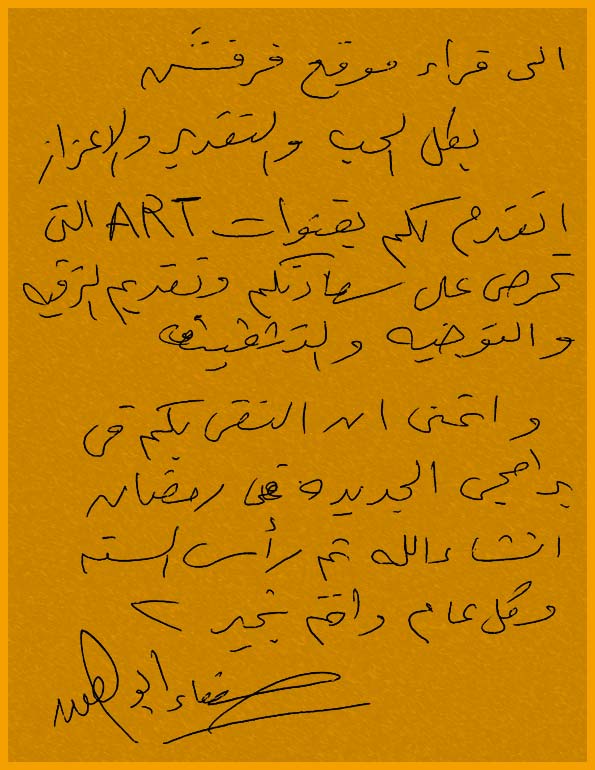 الى قراء موقع فرفش
بكل الحب والتقدير والاعزاز
اتقدم لكم بقنوات ART التى
تحرص على سعادتكم وتقديم الترفيه
والتوجيه والتثقيف
واتمنى ان التقى بكم فى
برامجى الجديدة فى رمضان
انشاءالله ثم رأس السنه
وكل عام وانتم بخير
صفاء ابو السعود